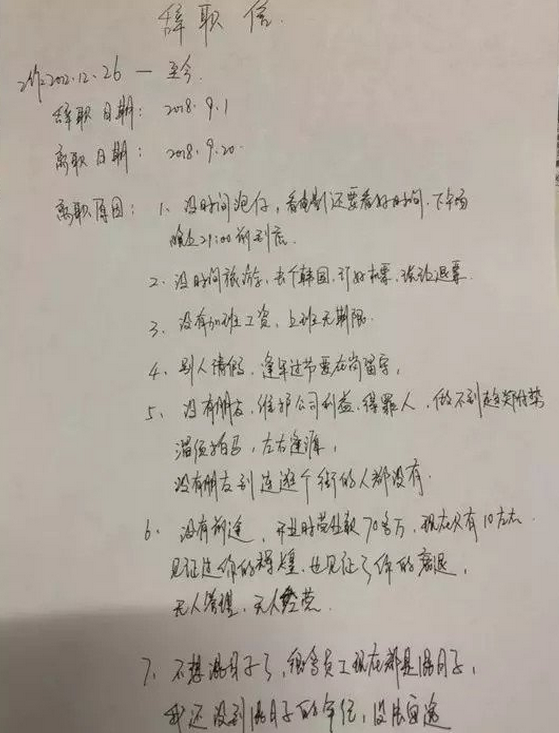 辞职信.
工作2012.12.26 — 至今.
辞职日期: 2018.9.1
离职日期: 2018.9.20.
离职原因: 1、没时间泡仔,看电影还要看好时间.下午场
晚上21:00前到店.
2、没时间旅游、去个韩国,订好机票,强迫退票.
3、没有加班工资,上班无期限.
4、别人请假、逢年过节要在岗留守,
5、没有朋友,维护公司利益,得罪人,做不到趋炎附势
溜须拍马,左右逢源,
没有朋友到连逛个街的人都没有.
6、没有前途,开业时营业额70多万,现在只有10左右.
见证过你的辉煌,也见证了你的衰退,
无人管理,无人经营.
7、不想混日子了,很多员工现在都是混日子,
我还没到混日子的年纪,没法面